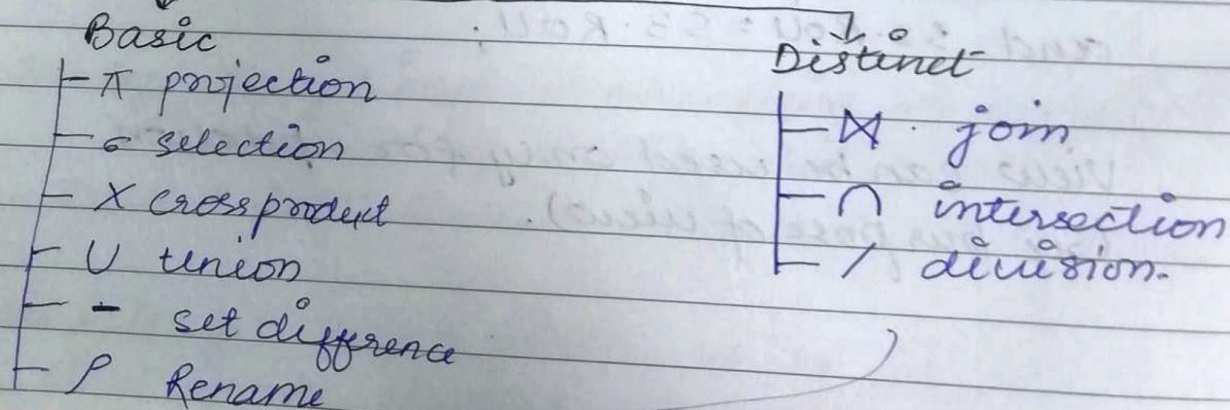 Basic
π projection
σ selection
X cross product
U union
- set difference
ρ Rename
Distinct
⋈ join
∩ intersection
/ division.